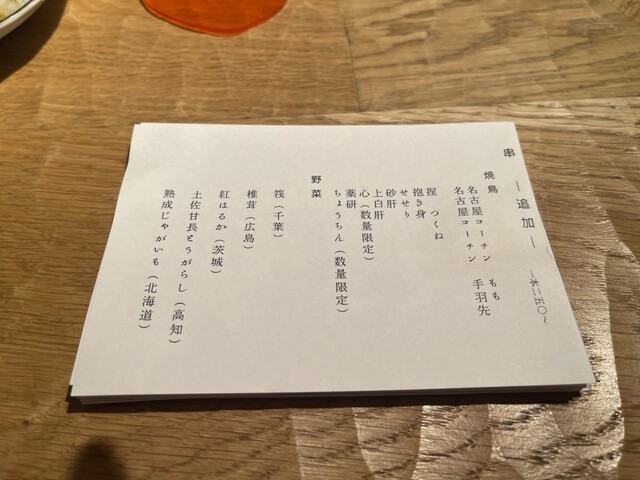 串 ー追加ー 一本二五〇～
焼鳥
名古屋コーチン もも
名古屋コーチン 手羽先
捏 つくね
抱き身
せせり
砂肝
上白肝
心(数量限定)
薬研
ちょうちん(数量限定)
野菜
筏(千葉)
椎茸(広島)
紅はるか(茨城)
土佐甘長とうがらし(高知)
熟成じゃがいも(北海道)